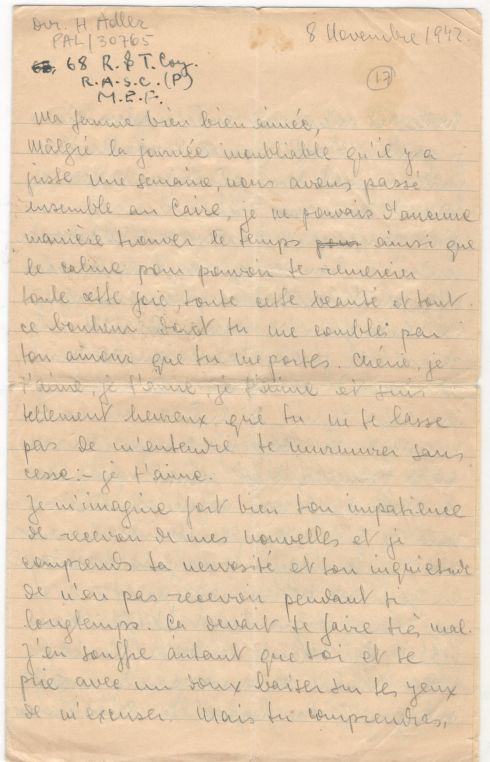 Dvr. H Adler
PAL/30765
8 Novembre 1942.
68 R. & T. Coy.
R.A.S.C. (P)
M.E.F.
17
Ma femme bien bien aimée,
Malgré la journée inoubliable qu'il y a
juste une semaine, nous avons passé
ensemble au Caire, je ne pouvais d'aucune
manière trouver le temps pour ainsi que
le calme pour pouvoir te remercier
toute cette joie, toute cette beauté et tout
ce bonheur dont tu me combles par
ton amour que tu me portes. Chérie, je
t'aime, je t'aime, je t'aime et suis
tellement heureux que tu ne te lasse
pas de m'entendre te murmurer sans
cesse:- je t'aime.
Je m'imagine fort bien ton impatience
de recevoir de mes nouvelles et je
comprends ta nervosité et ton inquietude
de n'en pas recevoir pendant si
longtemps. Ca devait te faire très mal.
J'en souffre autant que toi et te
prie avec un doux baiser sur tes yeux
de m'excuser. Mais tu comprendras,